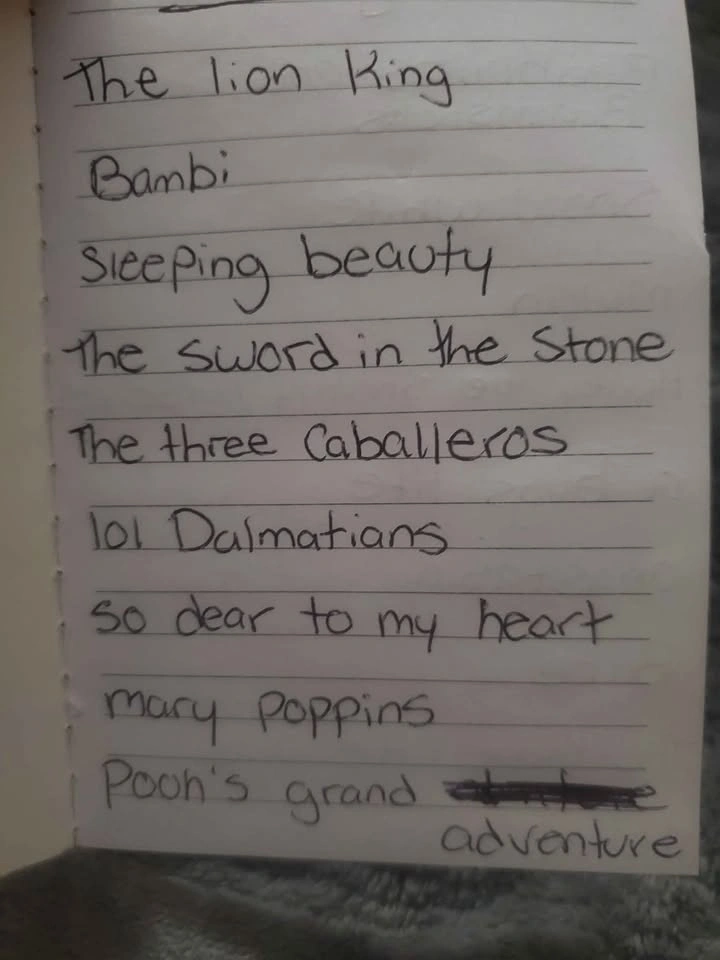 The lion King
Bambi
Sleeping beauty
The Sword in the Stone
The three Caballeros
101 Dalmatians
so dear to my heart
mary poppins
Pooh's grand
adventure